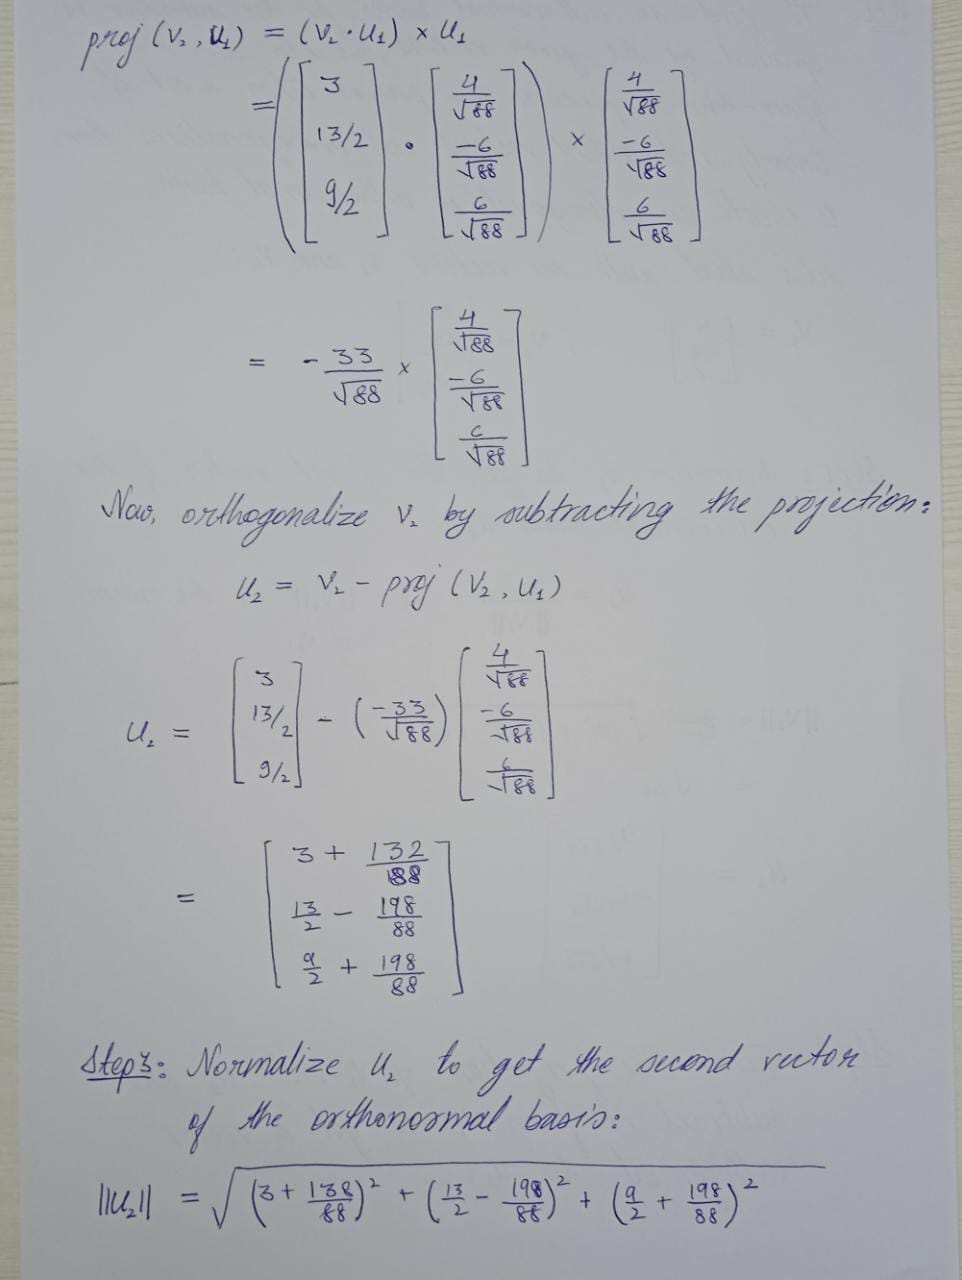 proj (V₂, U₁) = (V₂ · U₁) × U₁
= ( [ 3 13/2 9/2 ] · [ 4/√88 -6/√88 6/√88 ] ) × [ 4/√88 -6/√88 6/√88 ]
= - 33/√88 × [ 4/√88 -6/√88 6/√88 ]
Now, orthogonalize V₂ by subtracting the projection:
U₂ = V₂ - proj (V₂, U₁)
U₂ = [ 3 13/2 9/2 ] - (-33/√88) [ 4/√88 -6/√88 6/√88 ]
= [ 3 + 132/88 13/2 - 198/88 9/2 + 198/88 ]
Step3: Normalize U₂ to get the second vector
of the orthonormal basis:
||U₂|| = √ (3 + 138/88)² + (13/2 - 198/88)² + (9/2 + 198/88)²